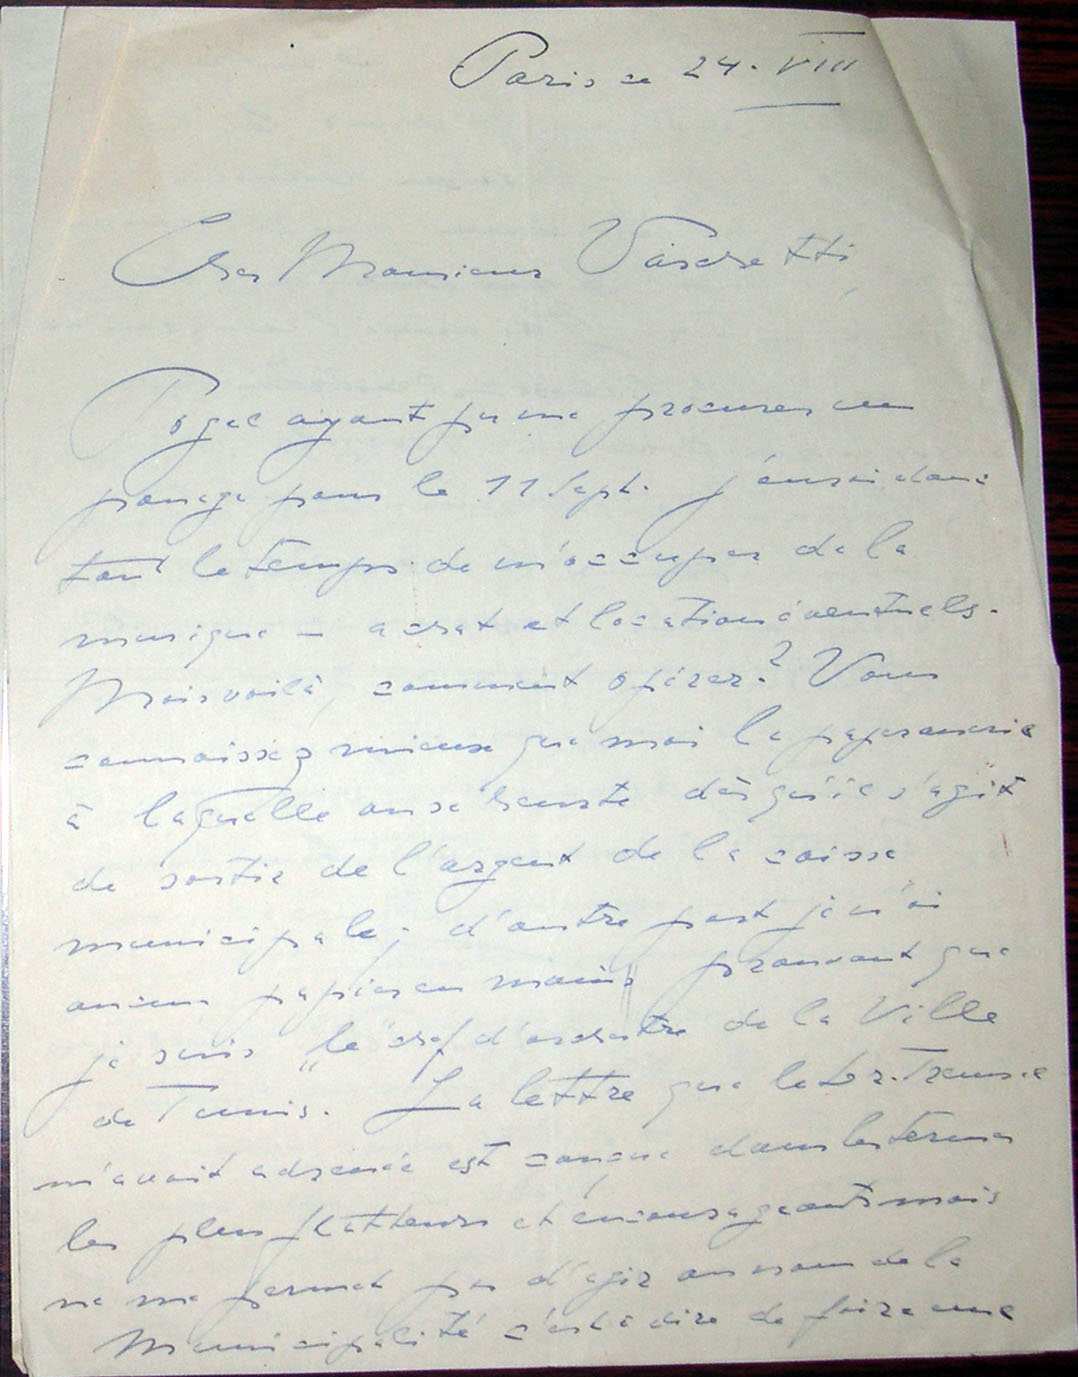 Paris ce 24. VIII
Cher Monsieur Vaischetti,
ayant pu me procurer un
passage pour le 11 Sept. j'aurai donc
tout le temps de m'occuper de la
musique – achat et location éventuels.
Mais voilà, comment opérer? Vous
connaissez mieux que moi la paperasserie
à laquelle on se heurte dès qu'il s'agit
de sortir de l'argent de la caisse
municipale; d'autre part je n'ai
aucun papier en mains prouvant que
je suis "le chef d'orchestre de la Ville
de Tunis. La lettre que le Dr.
m'avait adressée est conçue dans les termes
les plus flatteurs et encourageants mais
ne me permet pas d'agir au nom de la
Municipalité c'est à dire de faire une